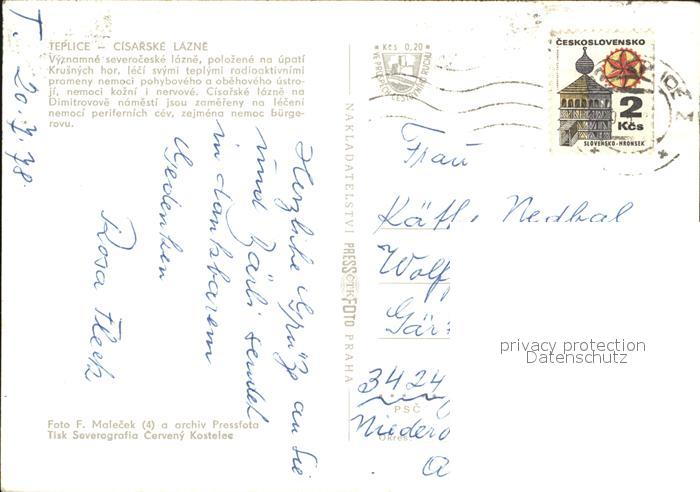 T. 20.7.78
TEPLICE – CÍSAŘSKÉ LÁZNĚ
Významné severočeské lázně, položené na úpatí
Krušných hor, léčí svými teplými radioaktivními
prameny nemoci pohybového a oběhového ústro-
jí, nemoci kožní i nervové. Císařské lázně na
Dimitrovově náměstí jsou zaměřeny na léčení
nemocí periferních cév, zejména nemoc bürge-
rovu.
Herzliche Grüße an Sie
und Bärli sendet
in dankbarem
Gedenken
Rosa Fleck
Foto F. Maleček (4) a archiv Pressfota
Tisk Severografia Červený Kostelec
NAKLADATELSTVÍ PRESSFOTO PRAHA
ČTK
Kčs 0,20
ČESKOSLOVENSKO
2
Kčs
SLOVENSKO-HRONSEK
Frau
Käthe Nedbal
Wolf
Gär
3424
PSČ
Niedero
Okres:
privacy protection
Datenschutz